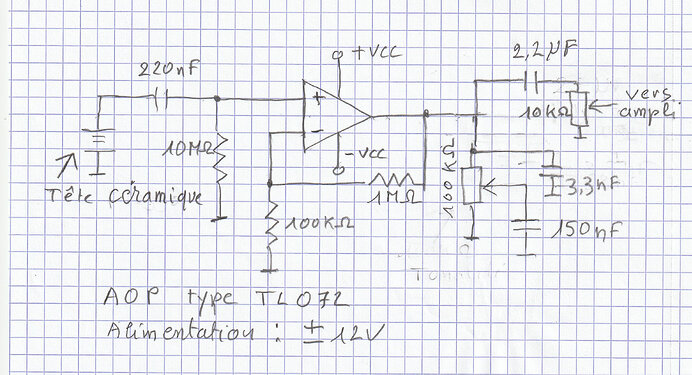 +VCC
220nF
2,2µF
+
-
10MΩ
-VCC
1MΩ
100KΩ
Tête céramique
10KΩ
vers
ampli
100KΩ
3,3nF
150nF
AOP type TL072
Alimentation : ± 12V